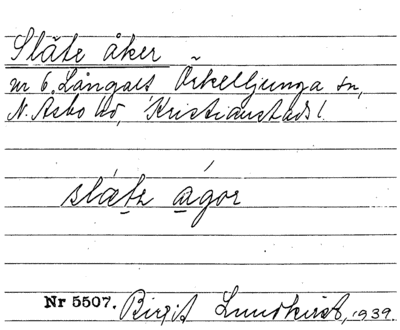 Slåte åker
nr 6. Långalt Örkelljunga sn,
N. Åsbo hd, Kristianstads l.
Nr 5507. Birgit Lundkvist, 1939.